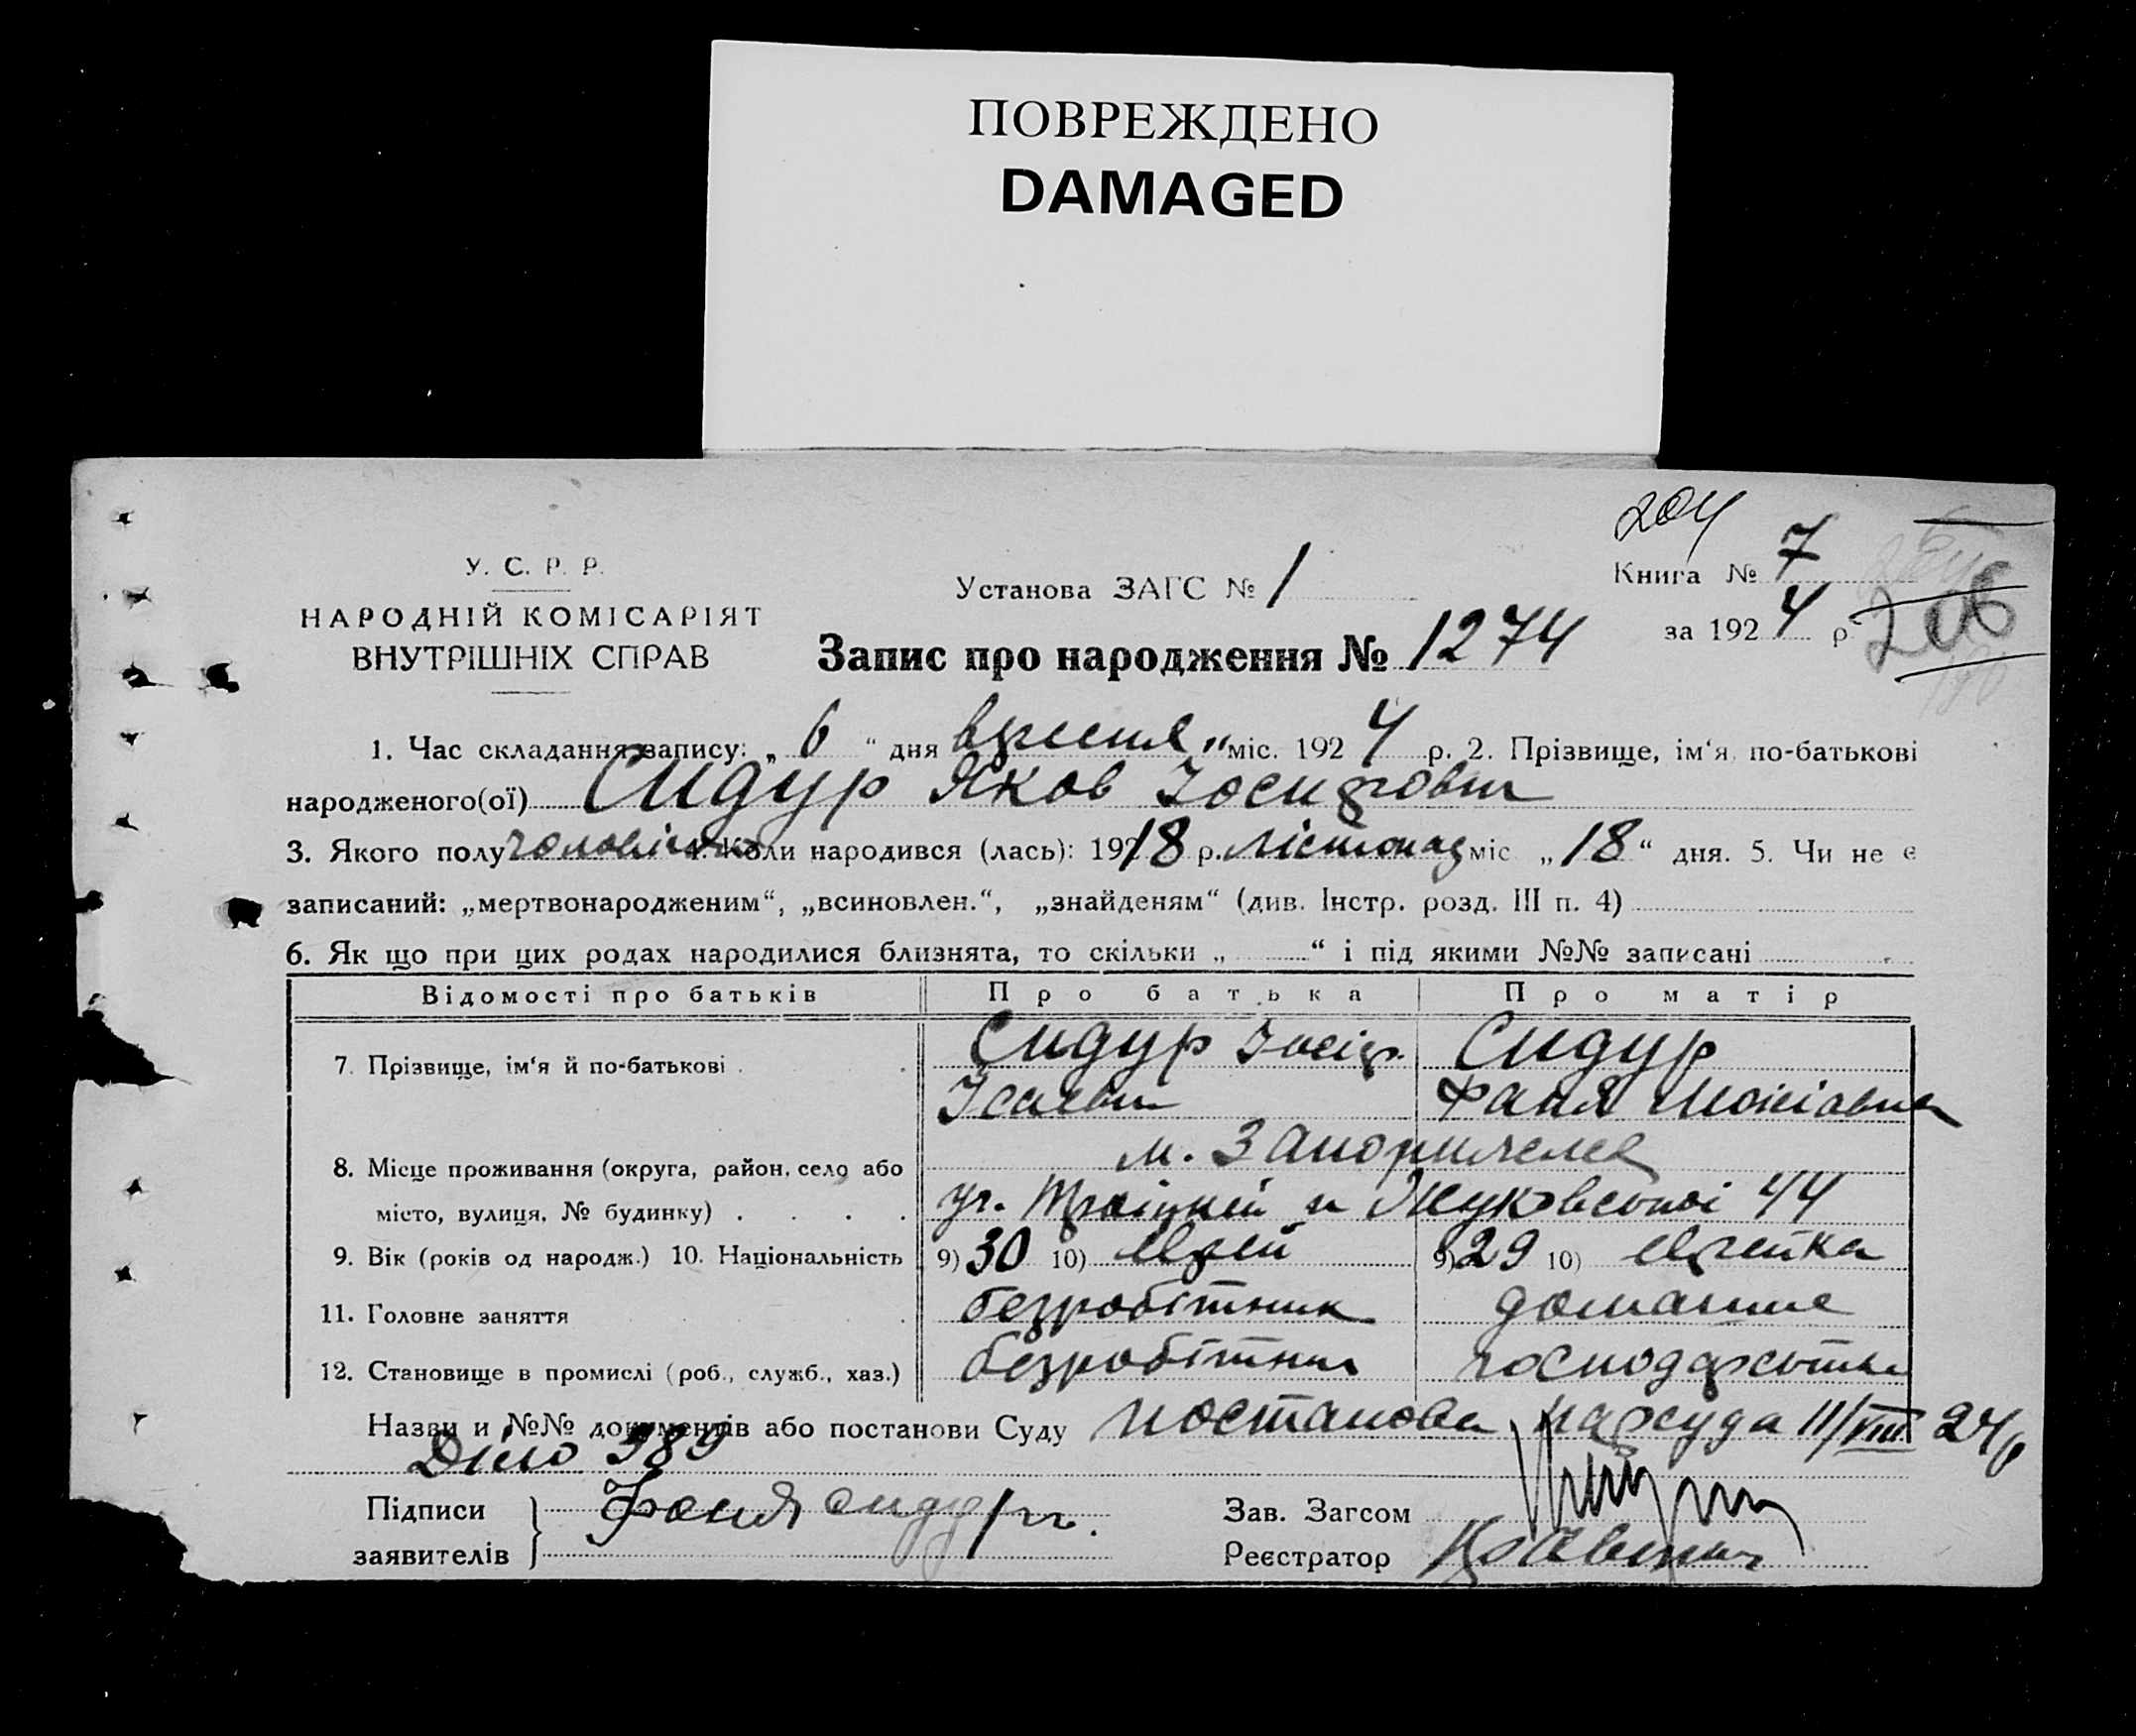 ПОВРЕЖДЕНО
DAMAGED
204
У. С. Р. Р.
НАРОДНІЙ КОМІСАРІЯТ
ВНУТРІШНІХ СПРАВ
Установа ЗАГС № 1
Книга № 7
за 1924 р.
206
Запис про народження № 1274
1. Час складання запису: „ 6 “ дня вресня „ міс. 1924 р. 2. Прізвище, ім‘я по-батькові
народженого(ої) Сидур Яков Іосифович
3. Якого полу чоловічого 4. Коли народився (лась): 1918 р. лістопад міс „ 18 “ дня. 5. Чи не є
записаний: „мертвонародженим“, „всиновлен.“, „знайденям“ (див. Інстр. розд. III п. 4)
6. Як що при цих родах народилися близнята, то скільки „ “ і під якими №№ записані
Відомості про батьків Про батька Про матір
7. Прізвище, ім‘я й по-батькові Сидур Іосіф. Сидур
Ісаевич Фаня
8. Місце проживання (округа, район, село або м.
місто, вулиця, № будинку) уг. Троіцкій и Жуковської 44
9. Вік (років од народж.) 10. Національність 9) 30 10) еврей 9) 29 10) еврейка
11. Головне заняття безробітник домашне
12. Становище в промислі (роб., служб., хаз.) безробітник господарство
Назви и №№ документів або постанови Суду постанова нарсуда 11/VIII 24 р
Діло 989
Підписи Фаня Сидур
заявителів
Зав. Загсом
Реєстратор